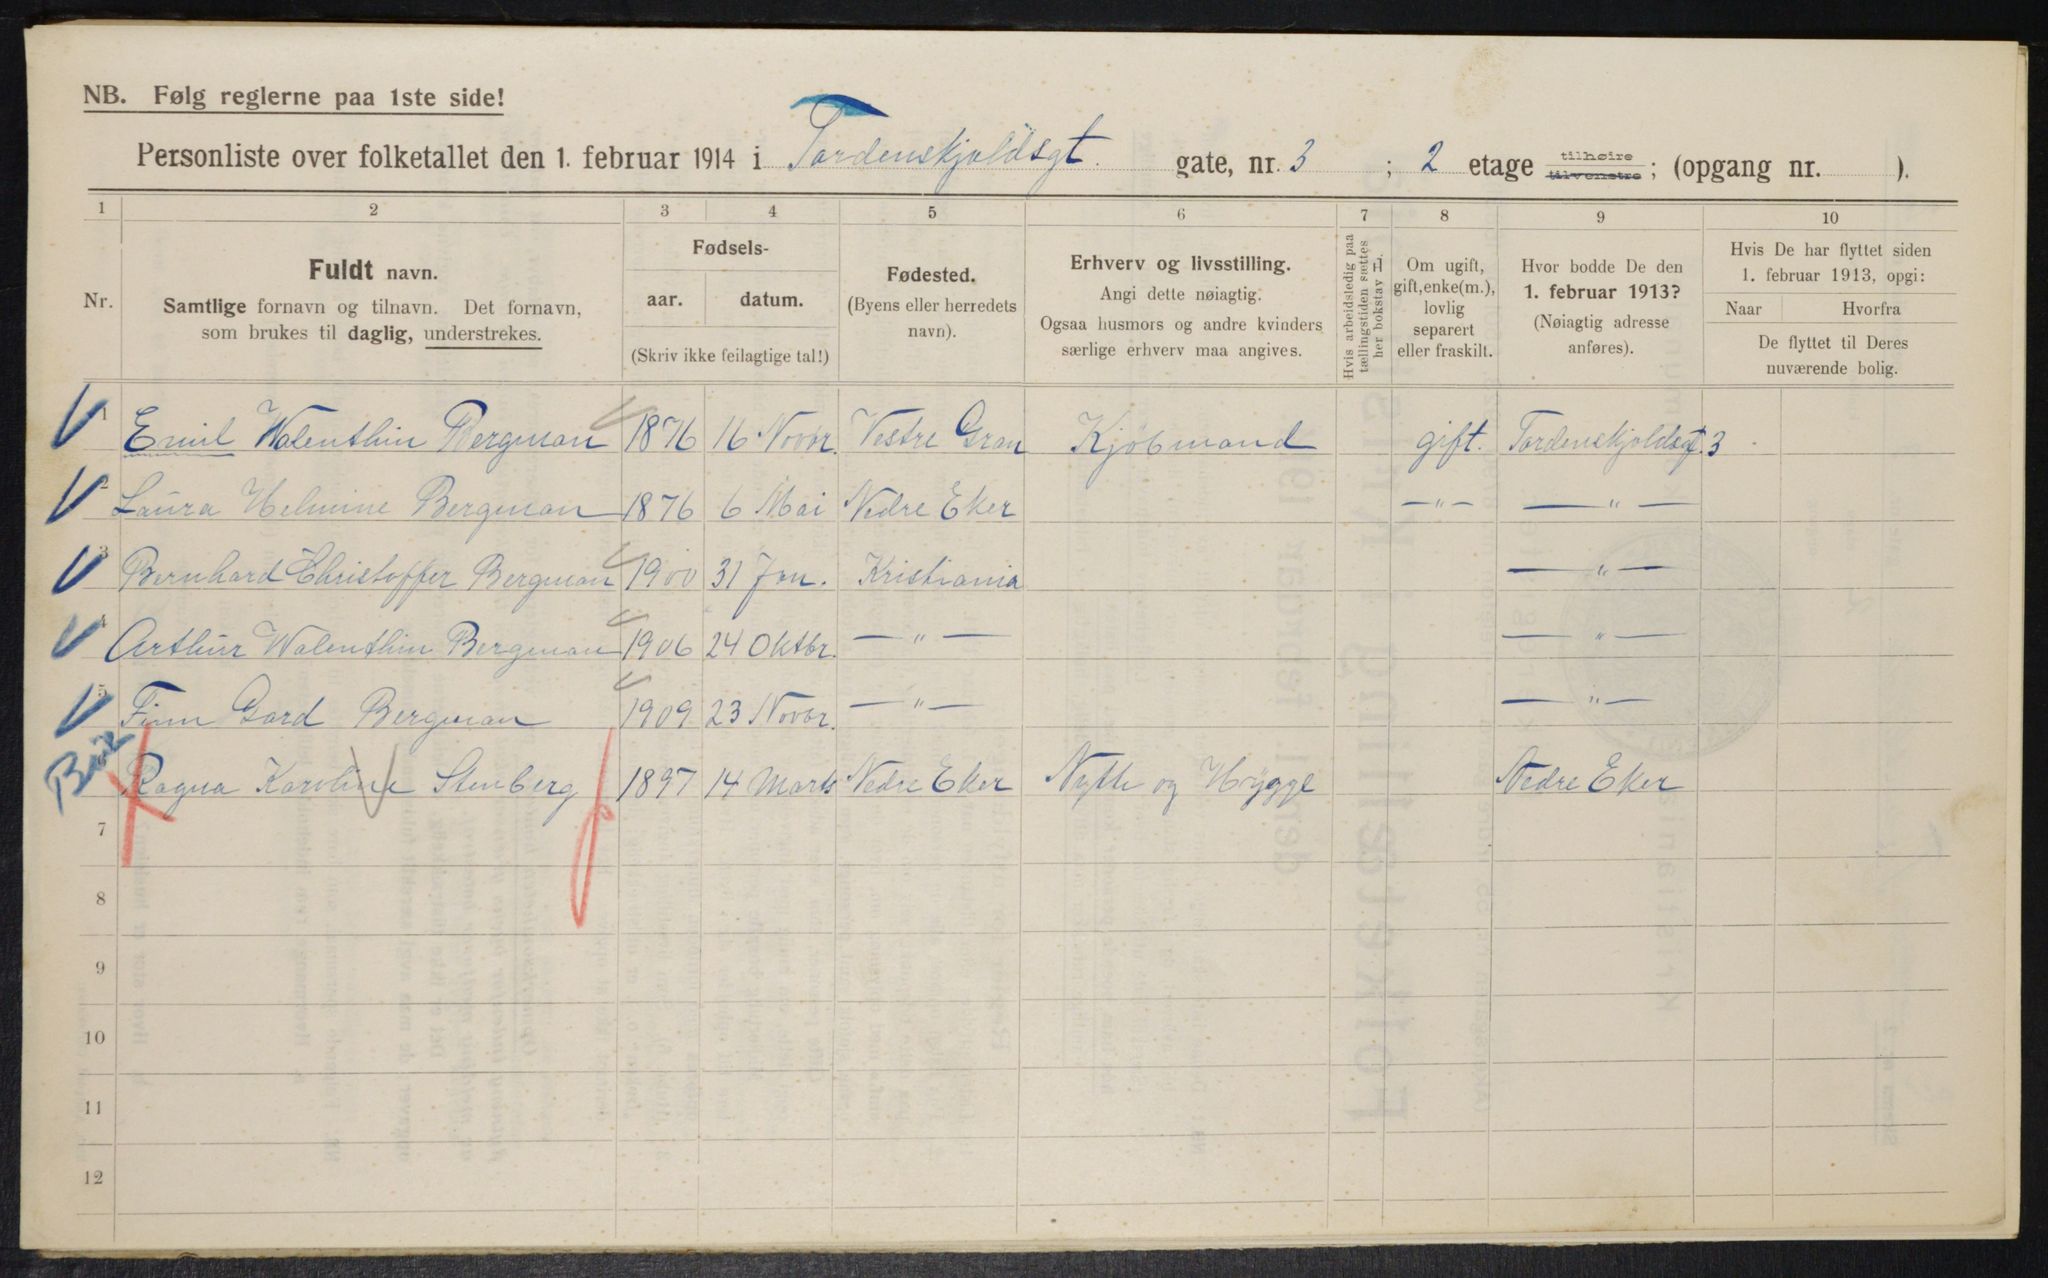 NB. Følg reglerne paa 1ste side!
Personliste over folketallet den 1. februar 1914 i Tordenskjoldsgt. gate, nr. 3 ; 2 etage tilhøire tilvenstre; (opgang nr. ).
1 2 3 4 5 6 7 8 9 10
Nr.
Fuldt navn.
Samtlige fornavn og tilnavn. Det fornavn,
som brukes til daglig, understrekes.
Fødsels-
aar. datum.
(Skriv ikke feilagtige tal!)
Fødested.
(Byens eller herredets
navn).
Erhverv og livsstilling.
Angi dette nøiagtig.
Ogsaa husmors og andre kvinders
særlige erhverv maa angives.
Hvis arbeidsledig paa
tællingstiden sættes
her bokstav L.
Om ugift,
gift, enke(m.),
lovlig
separert
eller fraskilt.
Hvor bodde De den
1. februar 1913?
(Nøiagtig adresse
anføres).
Hvis De har flyttet siden
1. februar 1913, opgi:
Naar Hvorfra
De flyttet til Deres
nuværende bolig.
1 Emil Walenthin Bergman 1876 16 Novbr. Vestre Gran Kjöbmand gift. Tordenskjoldsgt. 3
2 Laura Helmine Bergman 1876 6 Mai Nedre Eker —"— —"—
3 Bernhard Christoffer Bergman 1900 31 Jan. Kristiania —"—
4 Arthur Walenthin Bergman 1906 24 Oktbr. —"— —"—
5 Finn Gard Bergman 1909 23 Novbr. —"— —"—
Ragna Karoline Stenberg 1897 14 Marts Nedre Eker Nytte og Hygge Nedre Eker
7
8
9
10
11
12